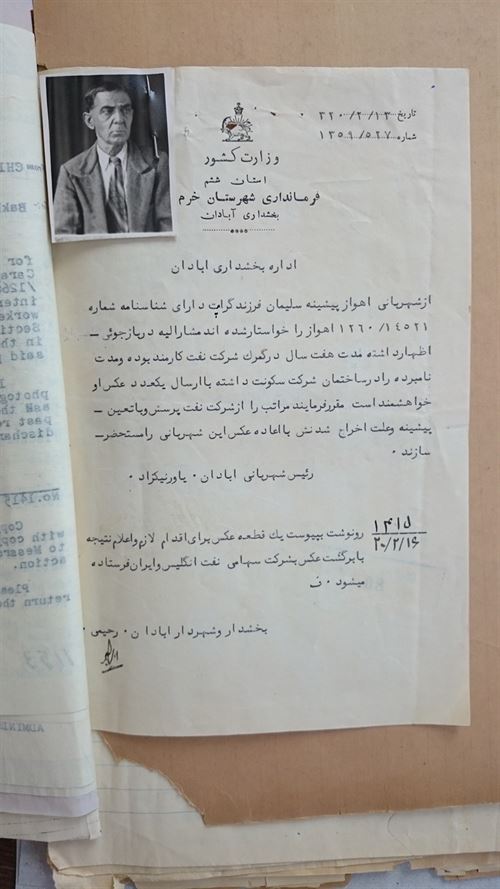 تاریخ ۳۲۰/۲/۱۳
شماره ۱۳۵۹/۵۲۷
وزارت کشور
استان ششم
فرمانداری شهرستان خرم
بخشداری آبادان
اداره بخشداری ابادان
ازشهربانی اهواز پیشینه سلیمان فرزند گراپت دارای شناسنامه شماره
۱۲۶۰/۱۴۵۲۱ اهواز را خواستارشده اند مشارالیه دربازجوئی -
اظهارداشته مدت هفت سال درگمرك شرکت نفت کارمند بوده ومدت
نامبرده رادرساختمان شرکت سکونت داشته باارسال یکعدد عکس او
خواهشمند است مقررفرمایند مراتب را ازشرکت نفت پرسش وباتعین -
پیشینه وعلت اخراج شدنش بااعاده عکس این شهربانی رامستحضر -
سازند ۰
رئیس شهربانی ابادان ۰ یاورنیکزاد ۰
۱۴۱۵
۲۰/۲/۱۶
رونوشت بپیوست يك قطعه عکس برای اقدام لازم واعلام نتیجه
با برگشت عکس بشرکت سهامی نفت انگلیس وایران فرستاده
میشود ۰ ف
بخشدار وشهردار ابادان ۰ رحیمی ۰
CHI
Bak
for
Cara
/126
inter
worke
Secti
in th
said
photog
ask th
past re
dischar
No.1415
Cop
with copy
to Messrs
action.
Pleas
return the
1153
ADMINI